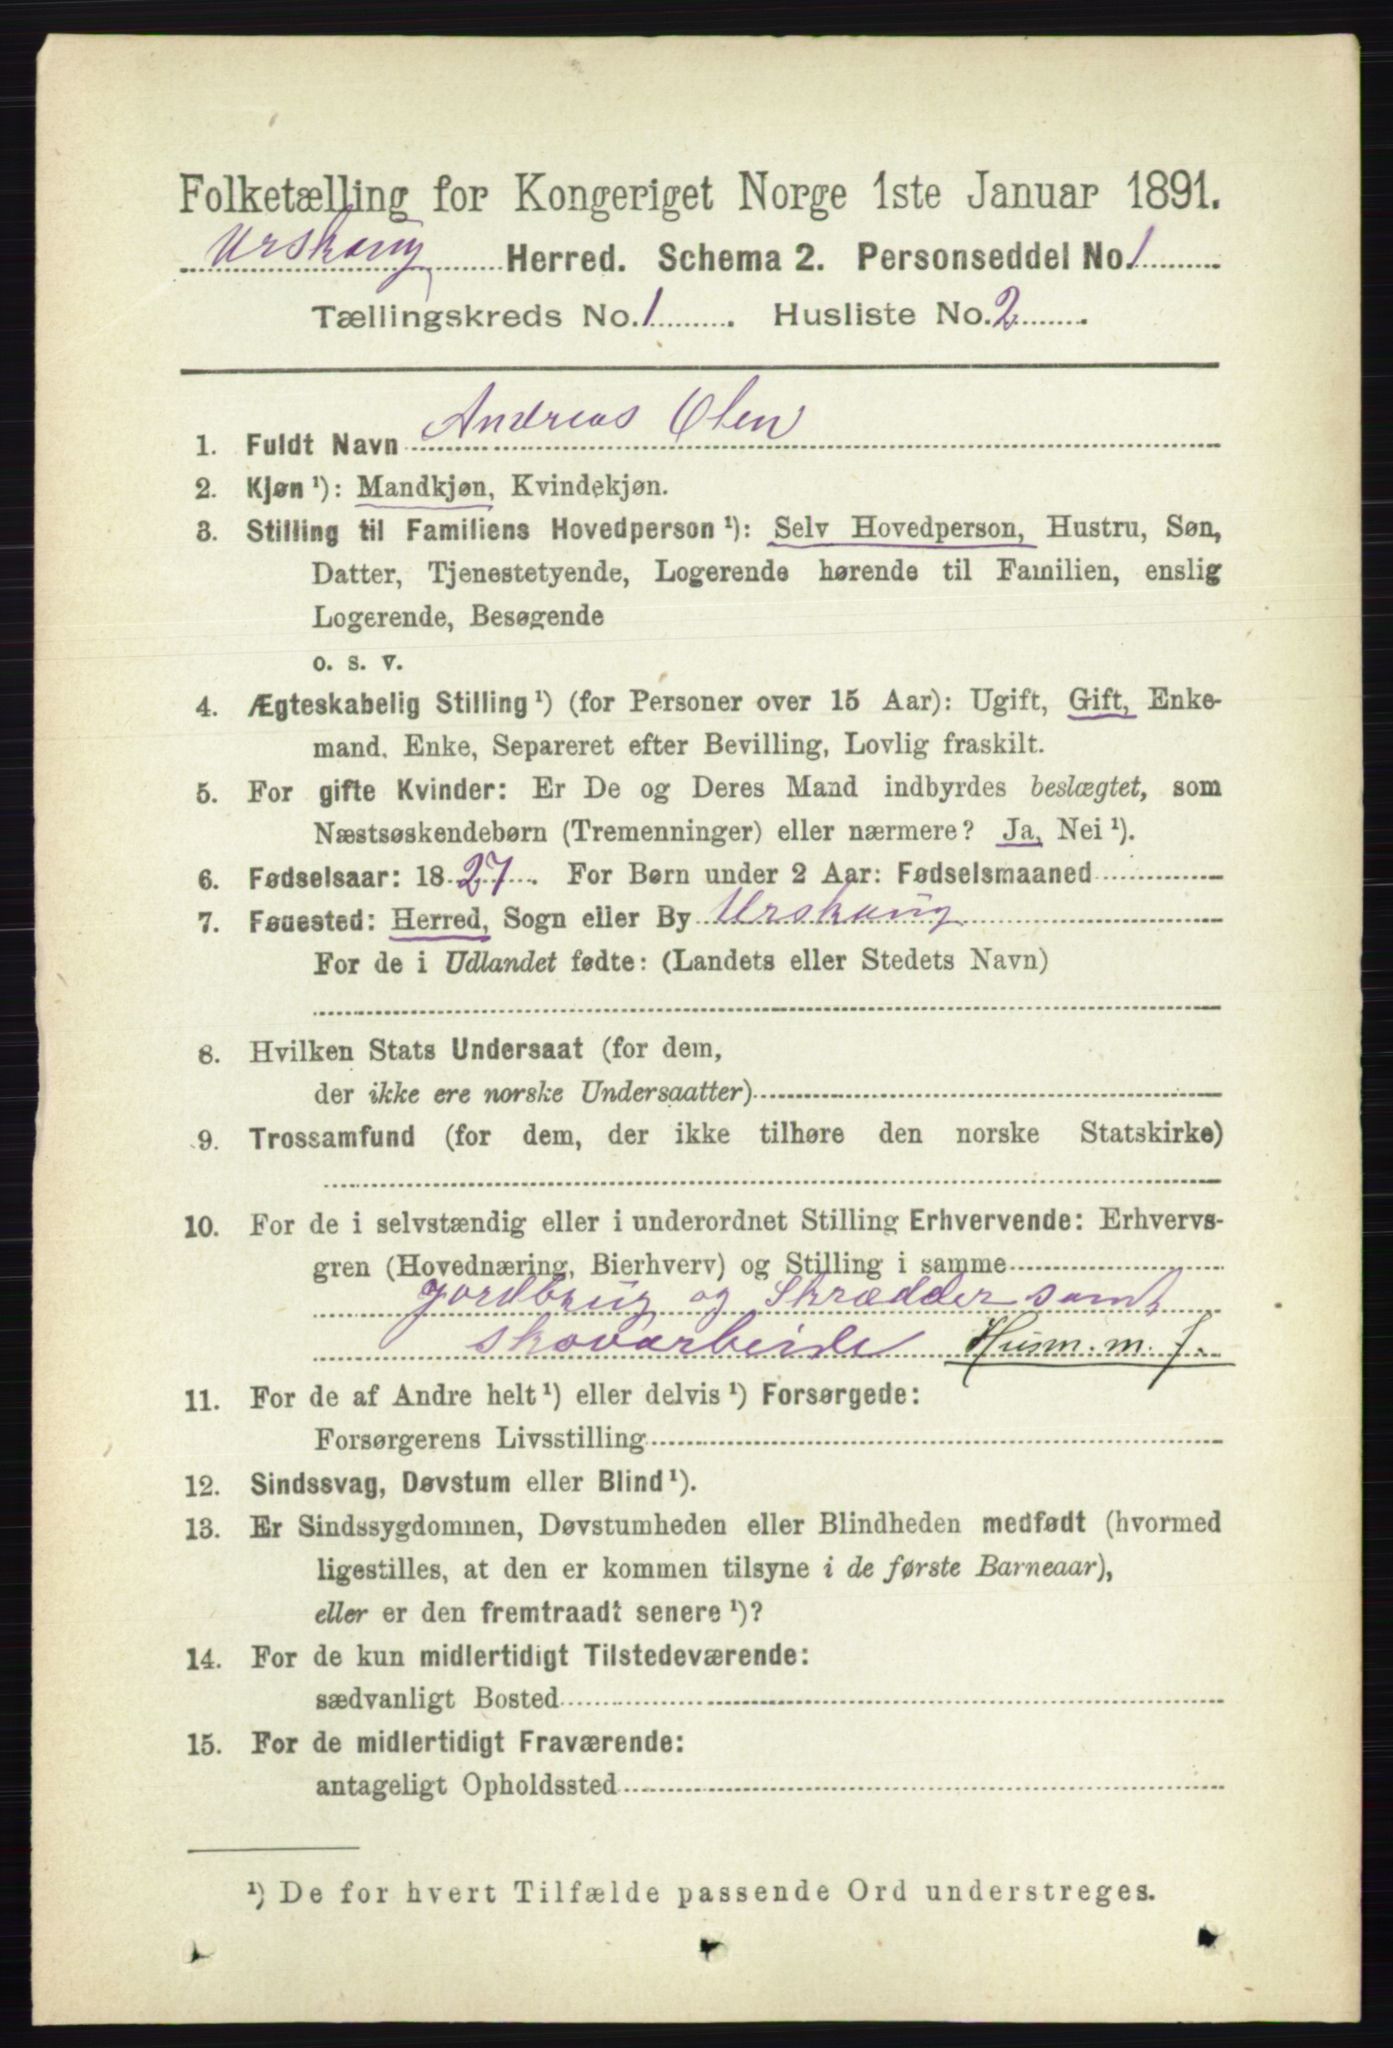 Folketælling for Kongeriget Norge 1ste Januar 1891.
Urskoug Herred. Schema 2. Personseddel No. 1
Tællingskreds No. 1. Husliste No. 2.
1. Fuldt Navn Andreas Olsen
2. Kjøn ¹): Mandkjøn, Kvindekjøn.
3. Stilling til Familiens Hovedperson ¹): Selv Hovedperson, Hustru, Søn,
Datter, Tjenestetyende, Logerende hørende til Familien, enslig
Logerende, Besøgende
o. s. v.
4. Ægteskabelig Stilling ¹) (for Personer over 15 Aar): Ugift, Gift, Enke-
mand, Enke, Separeret efter Bevilling, Lovlig fraskilt.
5. For gifte Kvinder: Er De og Deres Mand indbyrdes beslægtet, som
Næstsøskendebørn (Tremenninger) eller nærmere? Ja, Nei ¹).
6. Fødselsaar: 1827. For Børn under 2 Aar: Fødselsmaaned
7. Føuested: Herred, Sogn eller By Urskoug
For de i Udlandet fødte: (Landets eller Stedets Navn)
8. Hvilken Stats Undersaat (for dem,
der ikke ere norske Undersaatter)
9. Trossamfund (for dem, der ikke tilhøre den norske Statskirke)
10. For de i selvstændig eller i underordnet Stilling Erhvervende: Erhvervs-
gren (Hovednæring, Bierhverv) og Stilling i samme
Jordbrug og Skrædder samt
skovarbeide Husm. m. J.
11. For de af Andre helt ¹) eller delvis ¹) Forsørgede:
Forsørgerens Livsstilling
12. Sindssvag, Døvstum eller Blind ¹).
13. Er Sindssygdommen, Døvstumheden eller Blindheden medfødt (hvormed
ligestilles, at den er kommen tilsyne i de første Barneaar),
eller er den fremtraadt senere ¹)?
14. For de kun midlertidigt Tilstedeværende:
sædvanligt Bosted
15. For de midlertidigt Fraværende:
antageligt Opholdssted
¹) De for hvert Tilfælde passende Ord understreges.